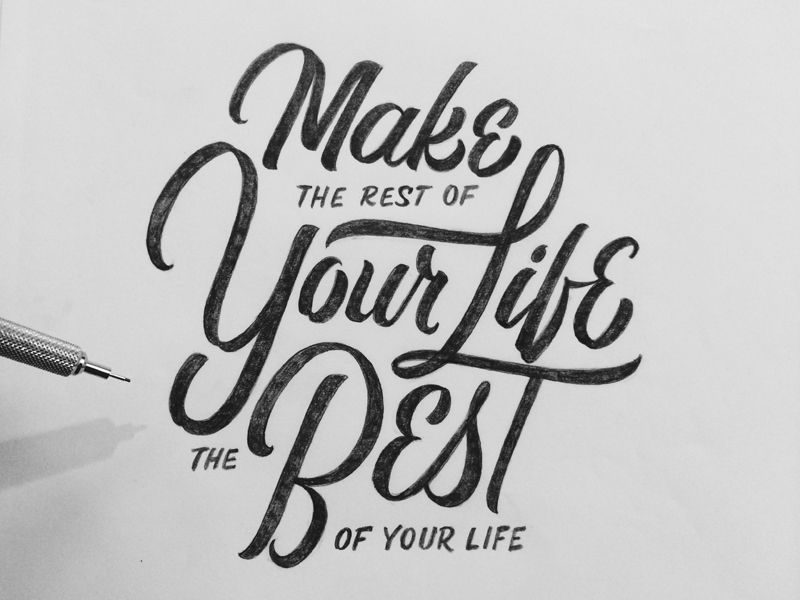 Make
THE REST OF
Your Life
THE BEST
OF YOUR LIFE